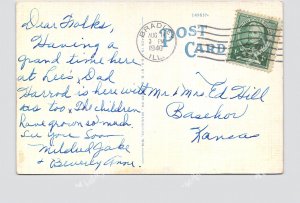 Dear Folks,
Having a
grand time here
at Lee's, Dad
Harrod is here with
us too. The children
have grown so much.
See you soon
Mildred Jake
& Beverly Anne.
BRADLEY
AUG
1940
ILL.
POST
CARD
Mr & Mrs Ed Hill
Basehor
Kansas